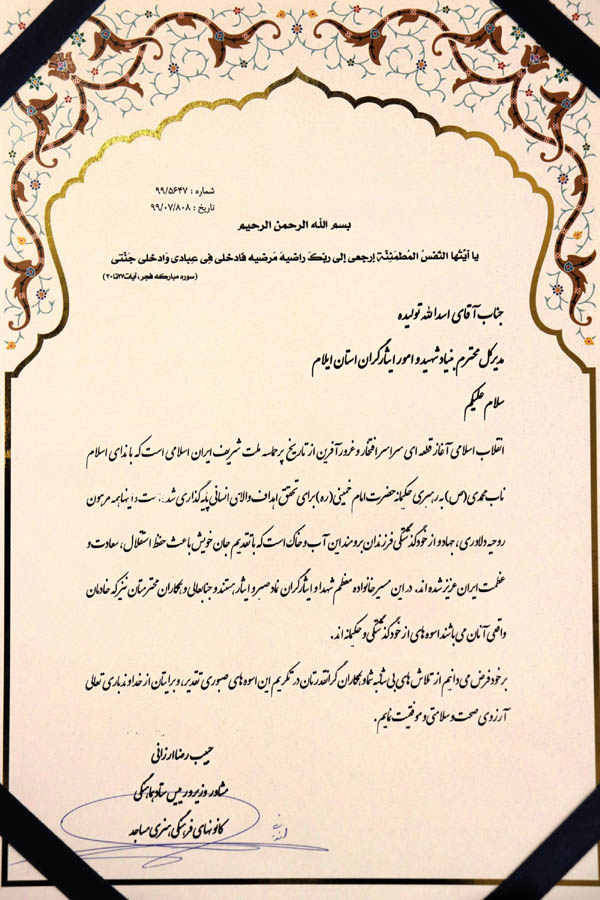 شماره : ۹۹/۵۶۴۷
تاریخ : ۹۹/۰۷/۸۰۸
بسم الله الرحمن الرحیم
یا أیَّتُها النَّفسُ المُطمَئِنَّة إرجِعی إلی ربِّکَ راضِیة مَرضِیه فادخُلی فِی عِبادی وَادخُلی جَنَّتی
(سوره مبارکه فجر، آیات ۲۷تا۳۰)
جناب آقای اسدالله تولیده
مدیرکل محترم بنیاد شهید و امور ایثارگران استان ایلام
سلام علیکم
انقلاب اسلامی آغاز قطعه ای سراسر افتخار و غرور آفرین از تاریخ پر حماسه ملت شریف ایران اسلامی است که با ندای اسلام
ناب محمدی (ص) به رهبری حکیمانه حضرت امام خمینی (ره) برای تحقق اهداف والای انسانی پایه گذاری شد و اینها همه مرهون
روحیه دلاوری، جهاد و از خودگذشتگی فرزندان برومند این آب و خاک است که با تقدیم جان خویش باعث حفظ استقلال، سعادت و
عظمت ایران عزیز شده اند. در این مسیر خانواده معظم شهدا و ایثارگران نماد صبر و ایثار هستند و جنابعالی و همکاران محترمتان نیز که خادمان
واقعی آنان می باشند اسوه های از خودگذشتگی و حکیمانه اند.
بر خود فرض می دانیم از تلاش های بی شائبه شما و همکاران گرانقدرتان در تکریم این اسوه های صبوری تقدیر، و برایتان از خداوند باری تعالی
آرزوی صحت و سلامتی و موفقیت نمایم.
حبیب رضا ارزانی
مشاور وزیر و رییس ستاد هماهنگی
کانونهای فرهنگی هنری مساجد